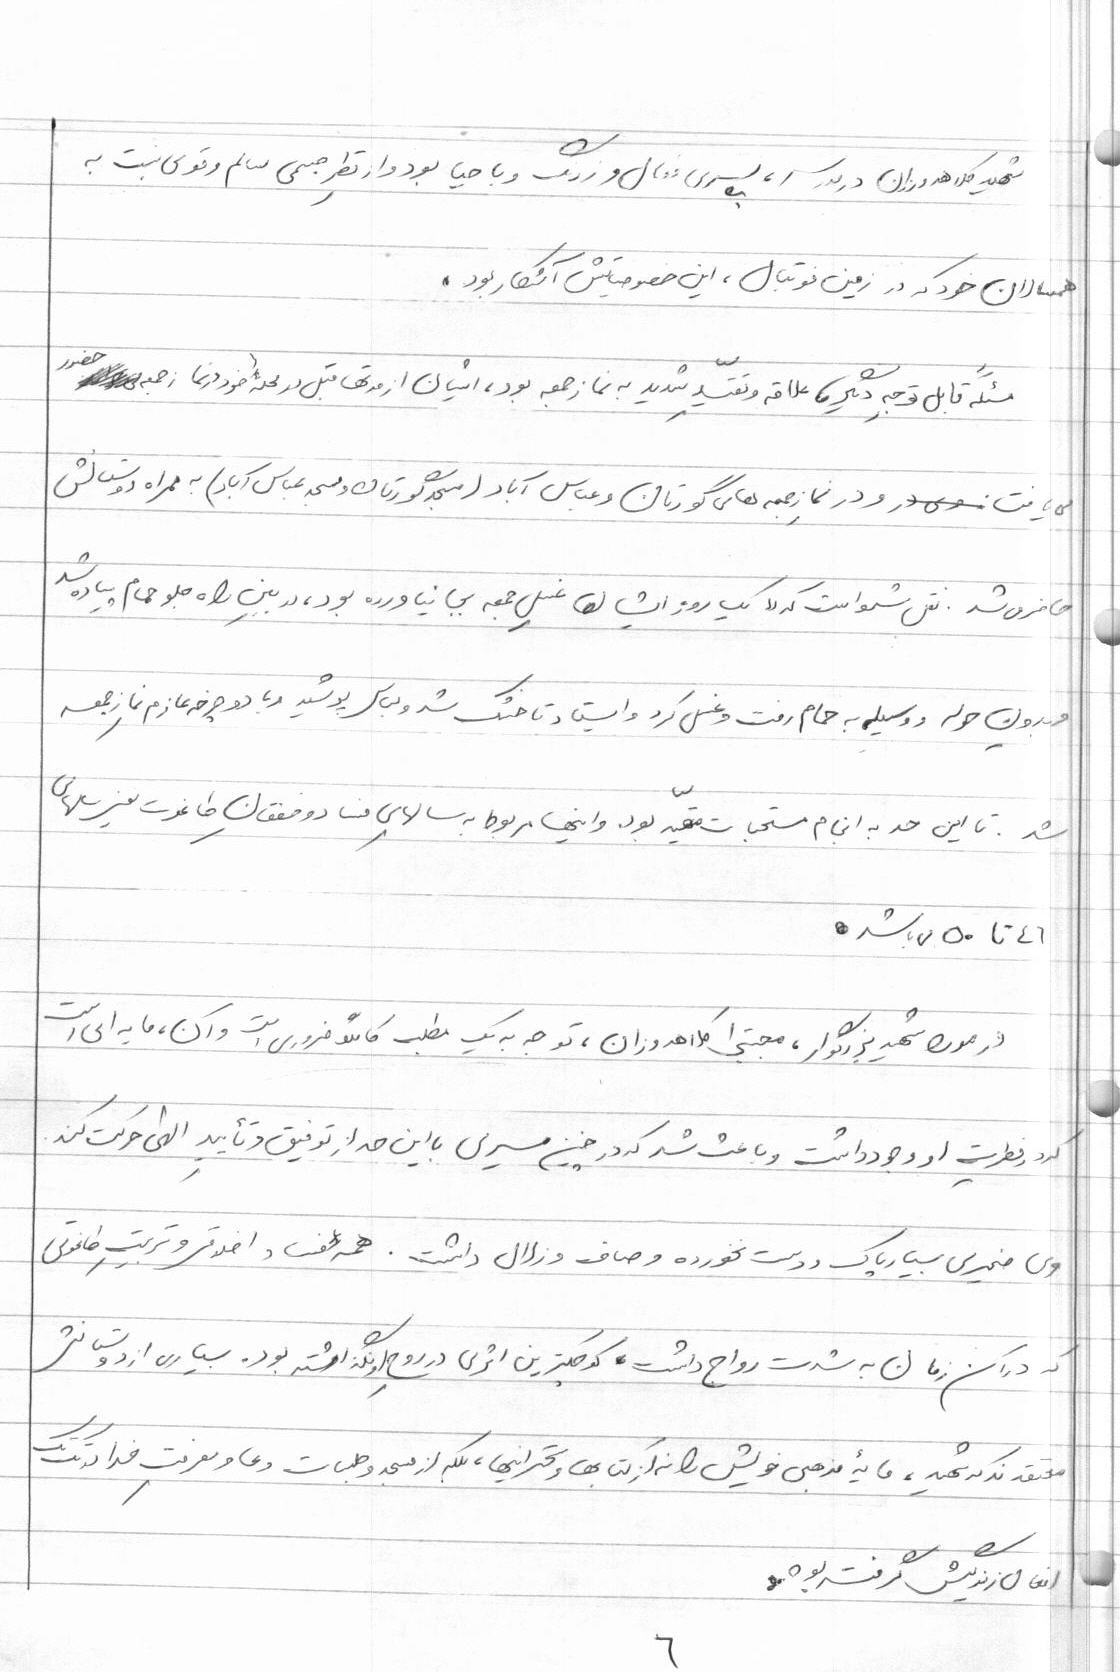 شهید کلاهدوزان در مدرسه، پسری فعال و زرنگ و با حیا بود و از نظر جسمی سالم و قوی نسبت به
همسالان خود که در زمین فوتبال، این خصوصیاتش آشکار بود.
مسئلهٔ قابل توجهِ دیگر، علاقه و تقیّدِ شدید به نماز جمعه بود، ایشان از مدتها قبل در محلهٔ خود در نماز جمعه حضور
می یافت و در نماز جمعه های گورتان و عباس آباد (مسجد گورتان و مسجد عباس آباد) به همراه دوستانش
حاضر می شد. نقل شده است که یک روز ایشان غسلِ جمعه بجا نیاورده بود، در بینِ راه جلو حمام پیاده شد
و بدونِ حوله و وسیله به حمام رفت و غسل کرد و ایستاد تا خشک شد و لباس پوشید و با دوچرخه عازم نماز جمعه
شد. تا این حد به انجام مستحبات مقیّد بود و اینها مربوط به سالهای فساد و خفقانِ طاغوت یعنی سالهای
٤٦ تا ٥٠ می باشد.
در مورد شهید بزرگوار، مجتبی کلاهدوزان، توجه به یک مطلب کاملاً ضروری است و آن، مایه ای است
که در فطرتِ او وجود داشت و باعث شد که در چنین مسیری با این حد از توفیق و تأییدِ الهی حرکت کند.
وی ضمیری بسیار پاک و دست نخورده و صاف و زلال داشت. همهٔ فساد اخلاقی و تربیتِ طاغوتی
که در آن زمان به شدت رواج داشت، کوچکترین اثری در روحِ او نگذاشته بود. بسیاری از دوستانش
معتقدند که شهید، مایهٔ مذهبی خویش را نه از کتابها و سخنرانیها، بلکه از مسجد و جلسات دعا و معرفتِ خدا در تک تک
افعال زندگیش گرفته بود.
٦